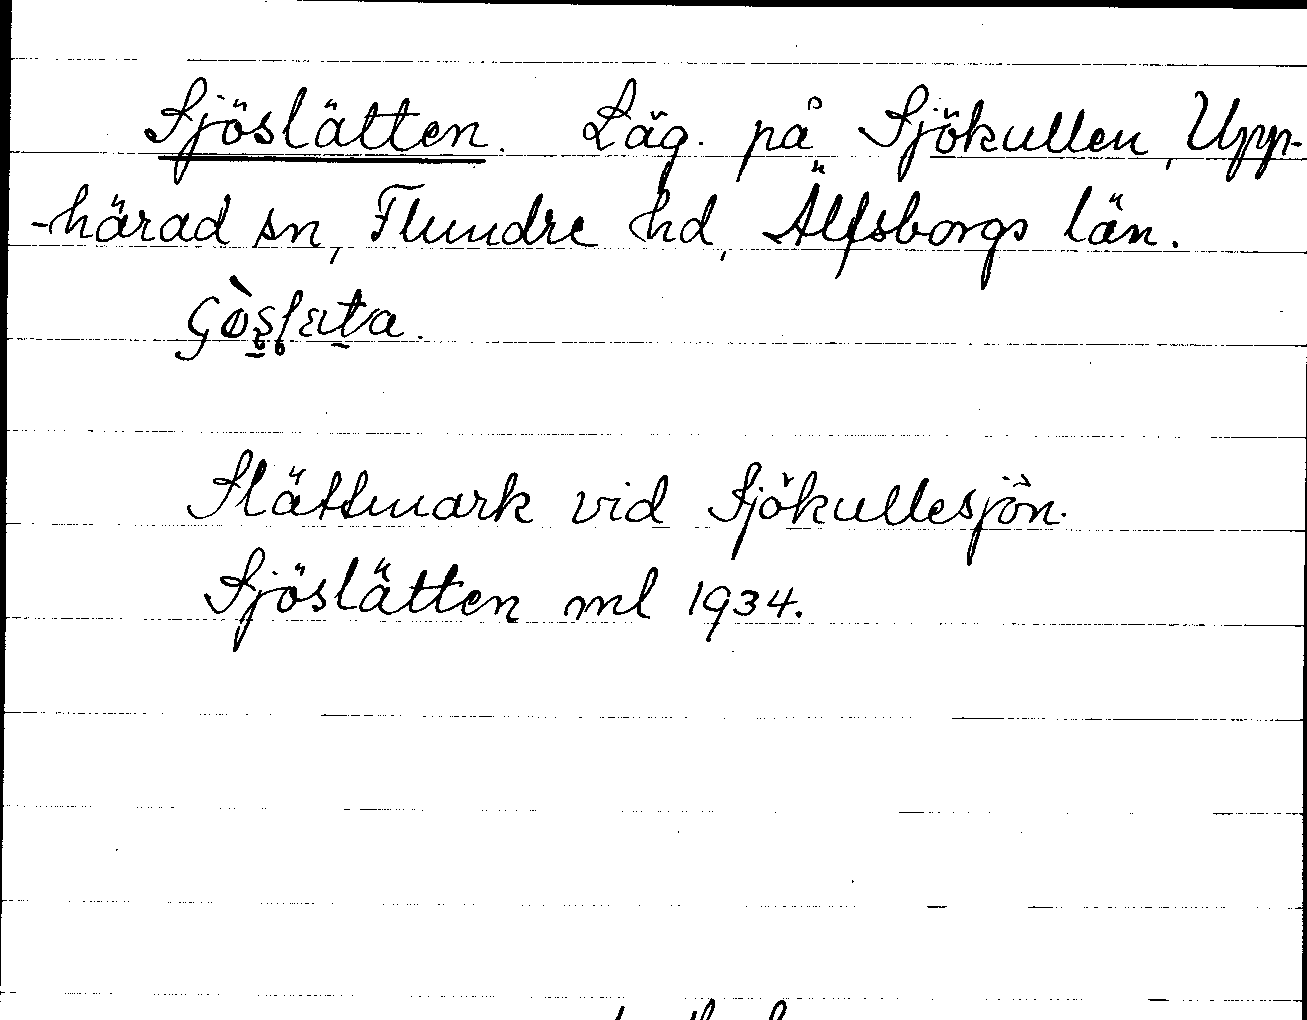 Sjöslätten. Läg. på Sjökullen, Upp-
-härad sn, Flundre hd, Älfsborgs län.
Slättmark vid Sjökullesjön.
Sjöslätten ml 1934.